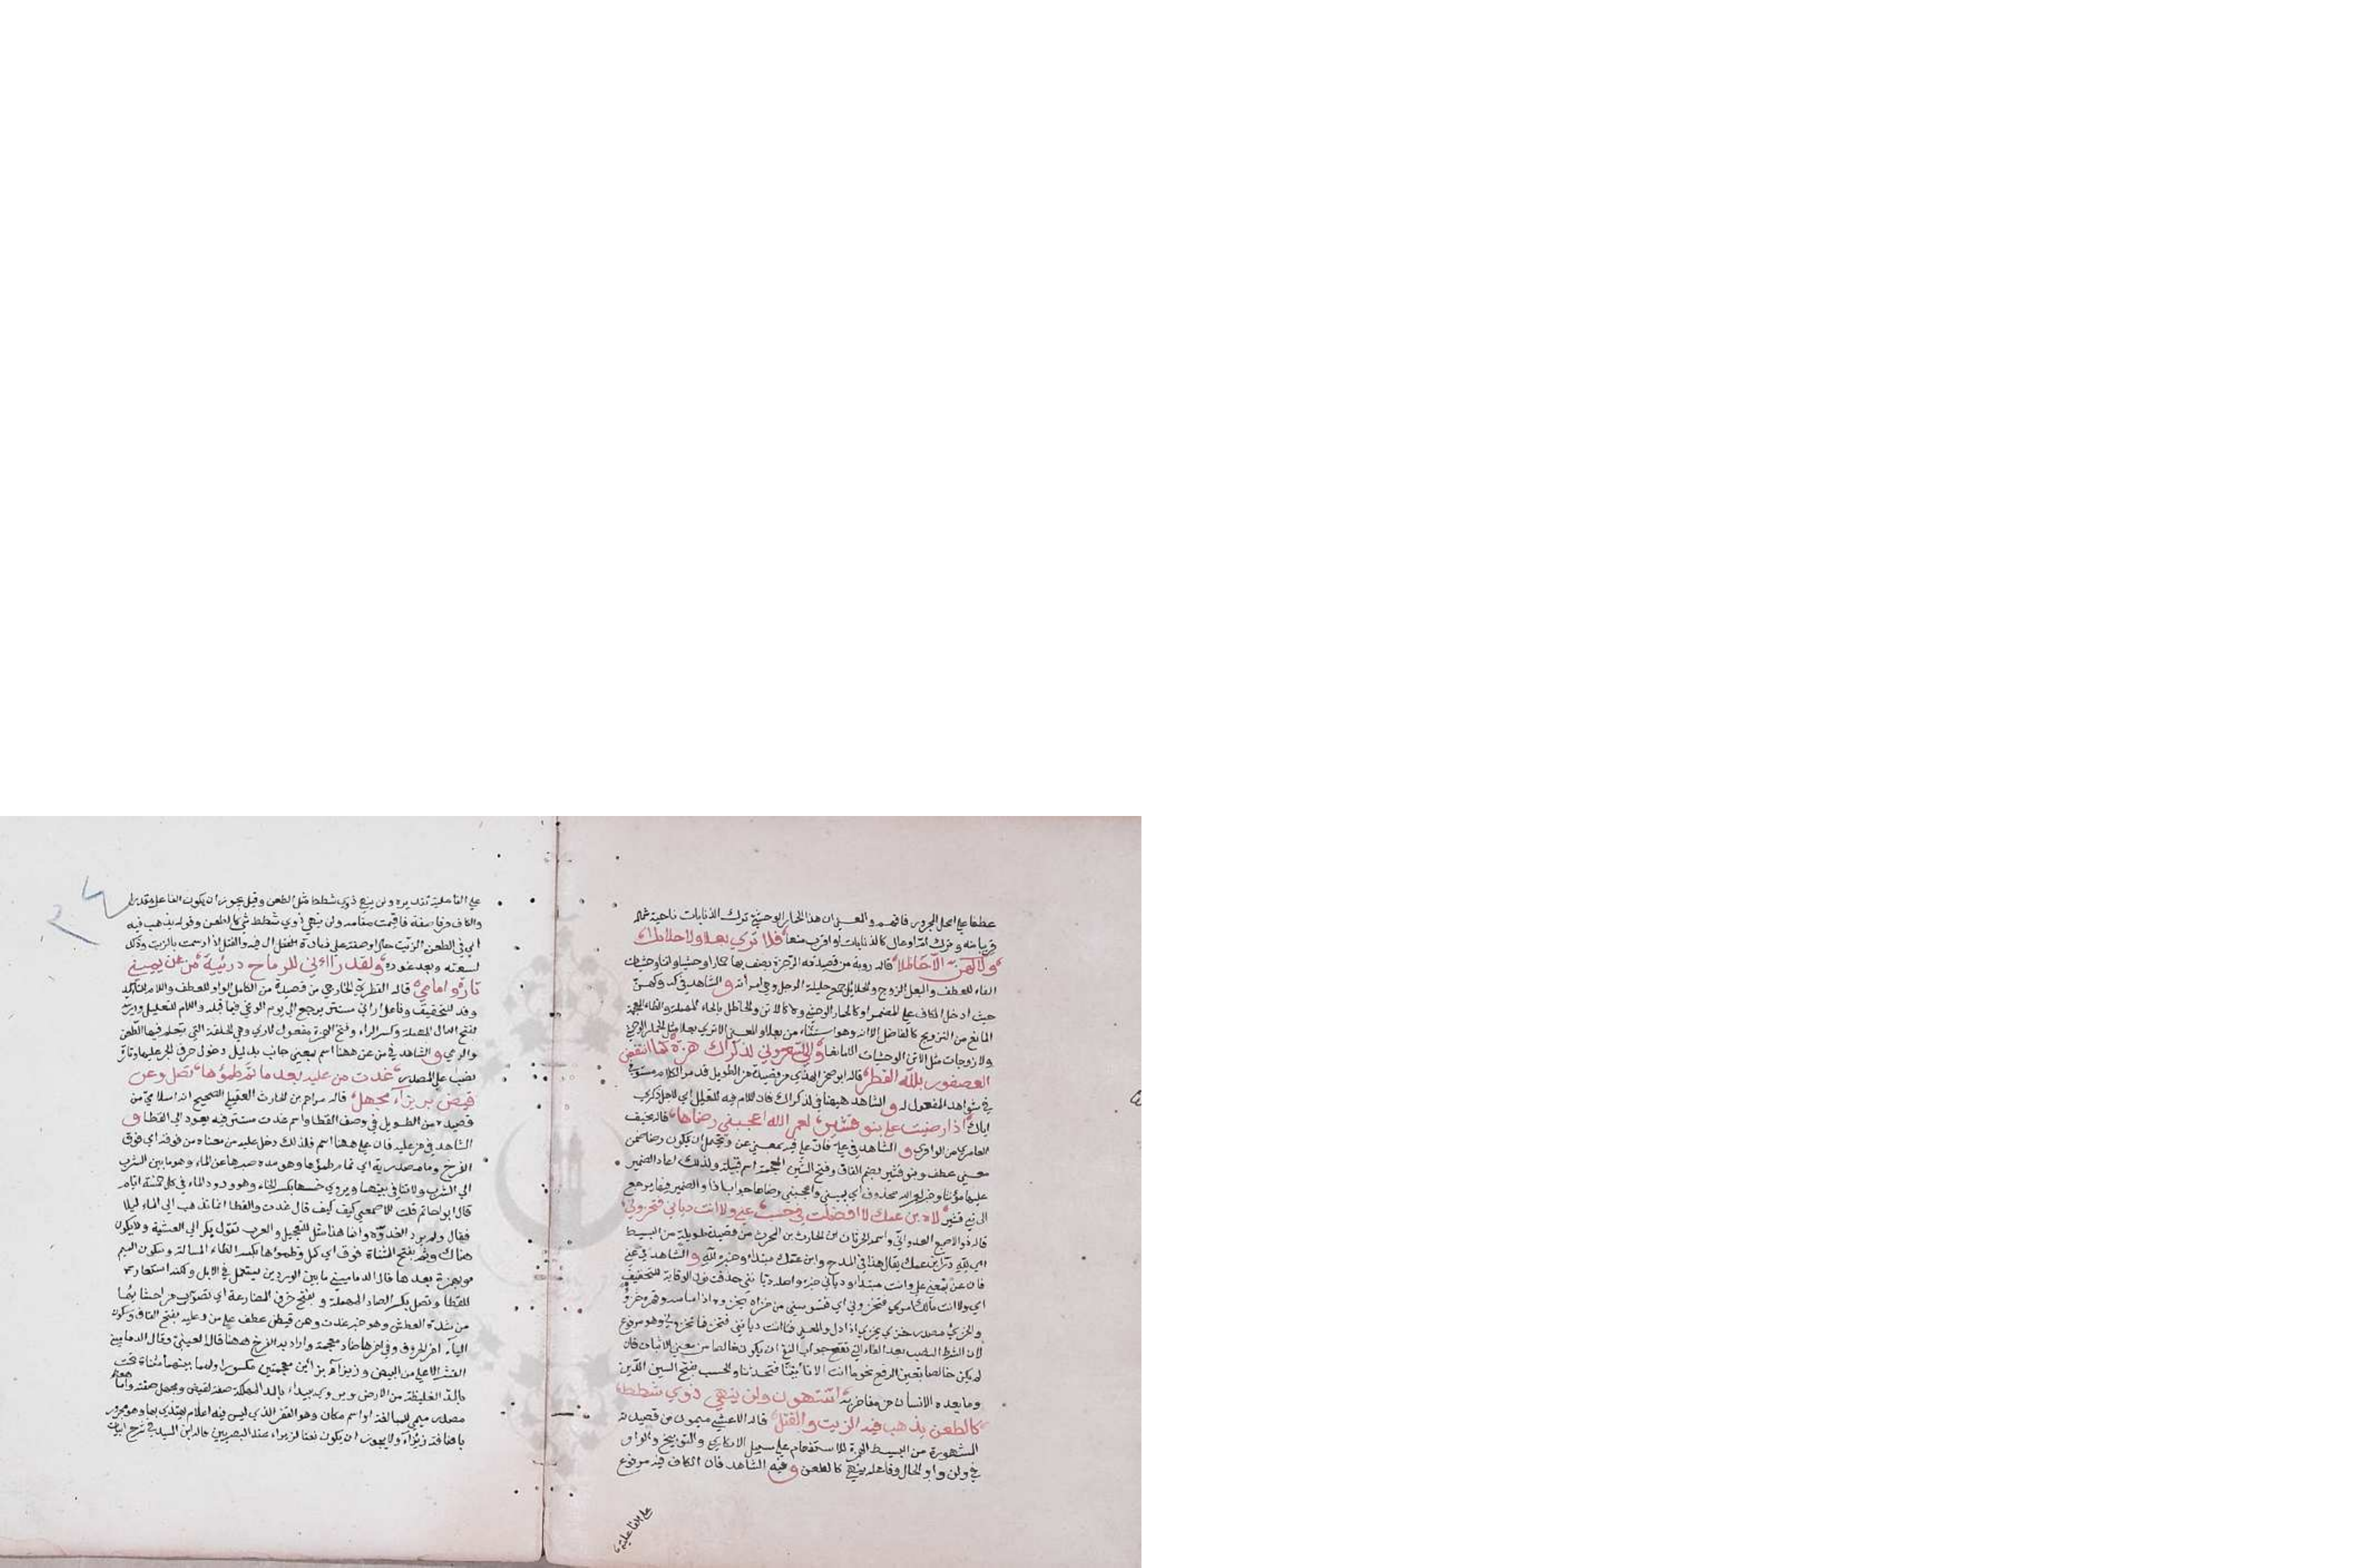 عطفا علي المحل المجرور فافهم والمعني ان هذا الحمار الوحشي ترك الذنابات ناحية شماله
قريبا منه وترك ام اوعال كالذنابات او اقرب منها فلا تري بعلا ولا حلائلا
ولا كهن الا حاظلا قاله روبة من قصيدته المرجزة يصف بها حمارا وحشيا واتنا وحشيات
الفاء للعطف والبعل الزوج والحلائل جمع حليلة الرجل وهي امرأته والشاهد في كه وكهن
حيث ادخل الكاف علي المضمر او كالحمار الوحشي ولا كالاتن والحاظل بالحاء المهملة والظاء المعجمة
المانع من التزويج كالعاضل الا انه وهو استثناء من بعلا والمعني لا تري بعلا مثل الحمار الوحشي
ولا زوجات مثل الاتن الوحشيات الا مانعا واني لتعروني لذكراك هزة كما انتفض
العصفور بلله القطر قاله ابو صخر الهذلي من قصيدة من الطويل قد مر الكلام مستوفي
في شواهد المفعول له والشاهد هيهنا في لذكراك فان اللام فيه للتعليل اي لاجل ذكري
اياك اذا رضيت علي بنو قشير لعمر الله اعجبني رضاها قاله قحيف
العامري من الوافر و الشاهد في علي فان علي فيه بمعني عن ويحتمل ان يكون رضا ضمن
معني عطف وبنو قشير بضم القاف وفتح الشين المعجمة اسم قبيلة ولذلك اعاد الضمير
عليها مؤنثا وخبر لعمر الله محذوف اي يميني واعجبني رضاها جواب اذا والضمير فيها يرجع
الي بني قشير لاه بن عمك لا افضلت في حسب عني ولا انت دياني فتخزوني
قاله ذو الاصبع العدواني واسمه الحرثان ابن الحارث بن المحرث من قصيدة طويلة من البسيط
اي لله در ابن عمك يقال هذا في المدح وابن عمك مبتداء وخبره لله والشاهد في عني
فان عن بمعني علي وانت مبتدا ودياني خبره واصله ديانني حذفت نون الوقاية للتخفيف
اي ولا انت مالك امري فتخزوني اي فتسوسني من خزاه يخزوه اذا ساسه وقهره خزو
والخزي مصدر خزي يخزي اذا ذل والمعني فما انت ديانني فتخزوني وهو مرفوع
لان شرط النصب بعد الفاء التي تقع جواب النفي ان يكون خالصا من معني الاثبات فان
لم يكن خالصا تعين الرفع نحو ما انت الا تأتينا فتحدثنا والحسب بفتح السين الدين
وما يعده الانسان من مفاخره اتنتهون ولن ينهي ذوي شطط
كالطعن يذهب فيه الزيت والفتل قاله الاعشي ميمون من قصيدته
المشهورة من البسيط الهمزة للاستفهام علي سبيل الانكار والتوبيخ والواو
في ولن واو الحال وفاعل ينهي كالطعن وفيه الشاهد فان الكاف فيه مرفوع
علي الفاعلية
علي الفاعلية تقديره ولن ينهي ذوي شطط مثل الطعن وقيل يجوز ان يكون الفاعل مقدرا
والكاف حرفا صفة فاقيمت مقامه ولن ينهي ذوي شطط شي كالطعن وقوله يذهب فيه
اي في الطعن الزيت حال او صفة علي زيادة الفتل ال فيه والفتل اذا دسمت بالزيت وذلك
لسعته وبعد غوره ولقد رااني للرماح دريئة من عن يميني
تارة وامامي قاله القطري الخارجي من قصيدة من الكامل الواو للعطف واللام للتأكيد
وقد للتحقيق وفاعل اراني مستتر يرجع الي يوم الوغي فيما قبله واللام للتعليل ودريئة
بفتح الدال المهملة وكسر الراء وفتح الهمزة مفعول لاري وهي الحلقة التي يتعلم فيها الطعن
والرمي والشاهد في من عن ههنا اسم بمعني جانب بدليل دخول حرف الجر عليها وتارة
نصب علي المصدر غدت من عليه بعد ما تم ظمؤها تصل وعن
قيض بزيزاء مجهل قاله مزاحم بن الحارث العقيلي الصحيح انه اسلامي من
قصيدة من الطويل في وصف القطا واسم غدت مستتر فيه يعود الي القطا و
الشاهد في من عليه فان علي ههنا اسم فلذلك دخل عليه من معناه من فوقه اي فوق
الفرخ وما مصدرية اي تمام ظمؤها وهو مده صبرها عن الماء وهو ما بين الشرب
الي الشرب ولا تنافي بينهما ويروي خمسها بكسر الخاء وهو ورود الماء في كل خمسة ايام
قال ابو حاتم قلت للاصمعي كيف كيف قال غدت والقطا انما تذهب الي الماء ليلا
فقال ولم يرد الغدوة وانما هذا مثل للتعجيل والعرب تقول بكر الي العشية ولا يكون
هناك وتم بفتح المثناة فوق اي كمل وظموها بكسر الظاء المشالة وسكون الميم
وبهمزة بعدها قال الدماميني ما بين الوردين يستعمل في الابل ولكنه استعاره
للقطا وتصل بكسر الصاد المهملة و بفتح حرف المضارعة اي تصوت من احشائها
من شدة العطش وهو خبر غدت وعن قيض عطف علي من وعليه بفتح القاف وسكون
الياء اخر الحروف وفي اخرها ضاد معجمة واراد به الفرخ ههنا قاله العيني وقال الدماميني
القشر الاعلي من البيض وزيزاء بزائين معجمتين مكسور اولهما بينهما مثناة تحت
بالمد الغليظة من الارض ويروي ببيداء بالمد المهلكة صفة لقيض ومجهل صفته واما
مصدر ميمي للمبالغة او اسم مكان وهو القفر الذي ليس فيه اعلام يهتدي بها وهو مجرور
باضافة زيزاء ولا يجوز ان يكون نعتا لزيزاء عند البصريين قاله ابن السيد في شرح ابيات